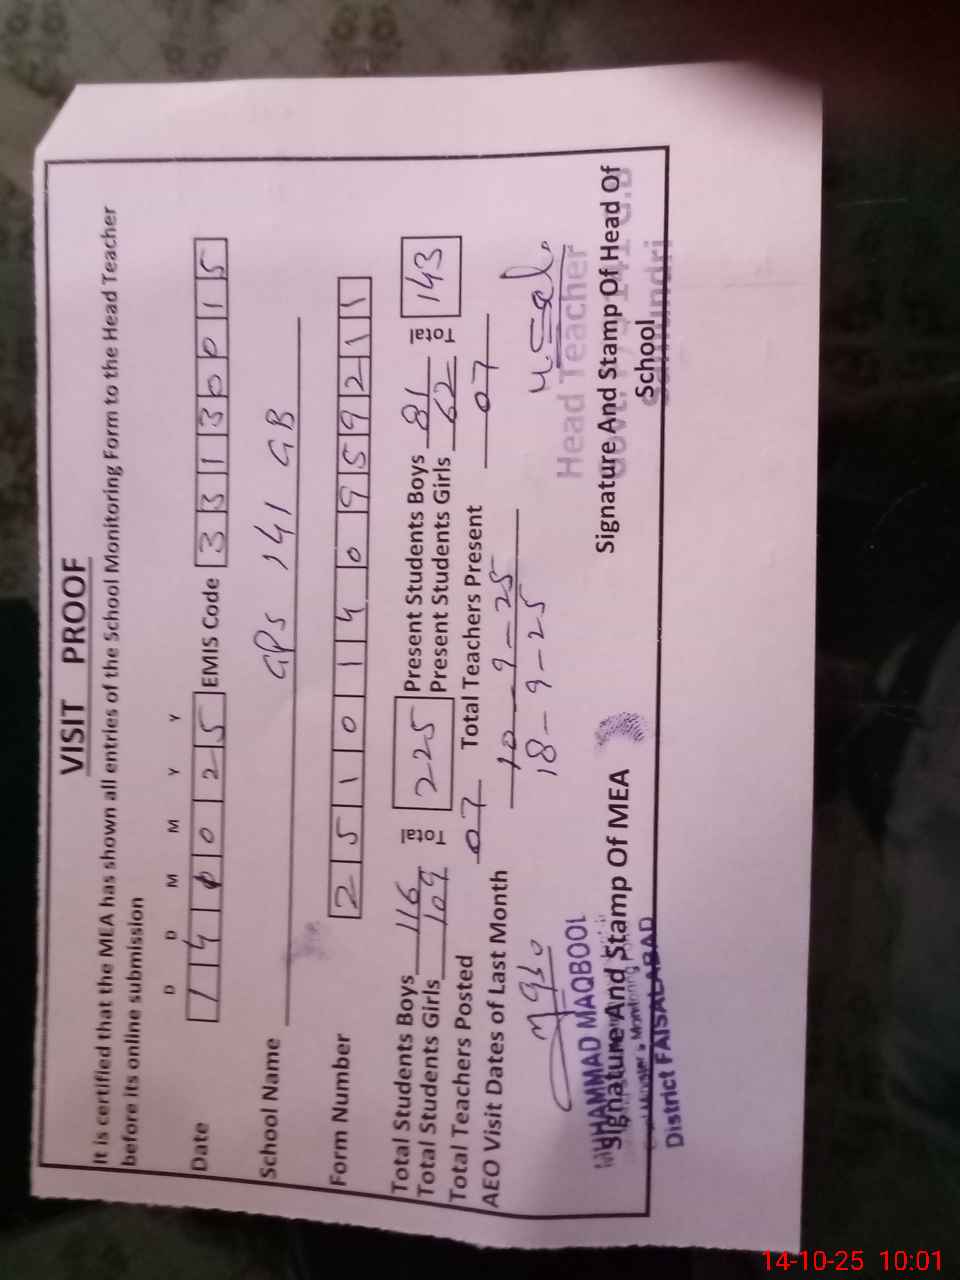 VISIT PROOF
It is certified that the MEA has shown all entries of the School Monitoring Form to the Head Teacher
before its online submission
D D M M Y Y
Date 1 4 1 0 2 5 EMIS Code 3 3 1 3 0 0 1 5
School Name GPS 141 GB
Form Number 2 5 1 0 1 4 0 9 5 9 2 1 1
Total Students Boys 116 Total 225 Present Students Boys 81 Total 143
Total Students Girls 109 Present Students Girls 62
Total Teachers Posted 07 Total Teachers Present 07
AEO Visit Dates of Last Month 10-9-25
18-9-25
Head Teacher
MUHAMMAD MAQBOOL
Signature And Stamp Of MEA
Signature And Stamp Of Head Of
School
District FAISALABAD
14-10-25 10:01